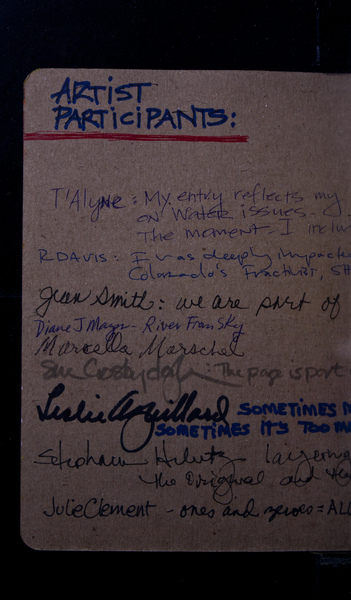 ARTIST
PARTICIPANTS:
T'Alyne: My entry reflects my
on Water issues.
The moment. I inclu
R DAVIS: I was deeply impacte
Colorado's Fractivist, Sh
Jean Smith: we are part of
Diane J Mayer - River From Sky
Marcella Marschel
Sue Crosby : The page is part
Leslie SOMETIMES
SOMETIMES IT'S TOO M
layering
the original and the
Julie Clement - ones and zeroes = ALL